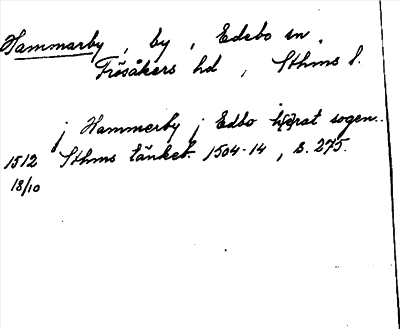 Hammarby, by, Edebo sn.
Frösåkers hd, Sthms l.
j Hammerby j Edbo hërat sogen..
1512 Sthms tänkeb. 1504-14, s. 275.
18/10